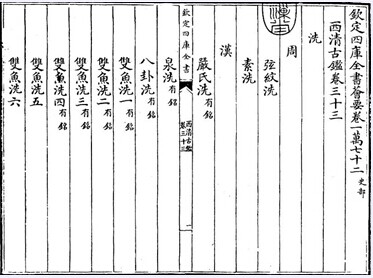 欽定四庫全書薈要卷一萬七十二 史部
西清古鑑卷三十三
洗
周
弦紋洗
素洗
漢
嚴氏洗 有銘
欽定四庫全書
西清古鑑
卷三十三
泉洗 有銘
八卦洗 有銘
雙魚洗一 有銘
雙魚洗二 有銘
雙魚洗三 有銘
雙魚洗四 有銘
雙魚洗五
雙魚洗六